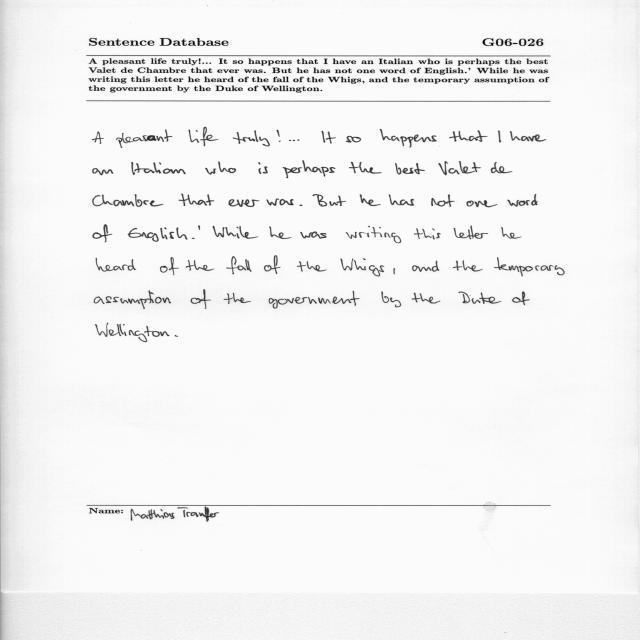 Sentence Database G06-026
A pleasant life truly!... It so happens that I have an Italian who is perhaps the best
Valet de Chambre that ever was. But he has not one word of English.' While he was
writing this letter he heard of the fall of the Whigs, and the temporary assumption of
the government by the Duke of Wellington.
A pleasant life truly!... It so happens that I have
an Italian who is perhaps the best Valet de
Chambre that ever was. But he has not one word
of English.' While he was writing this letter he
heard of the fall of the Whigs, and the temporary
assumption of the government by the Duke of
Wellington.
Name: Matthias